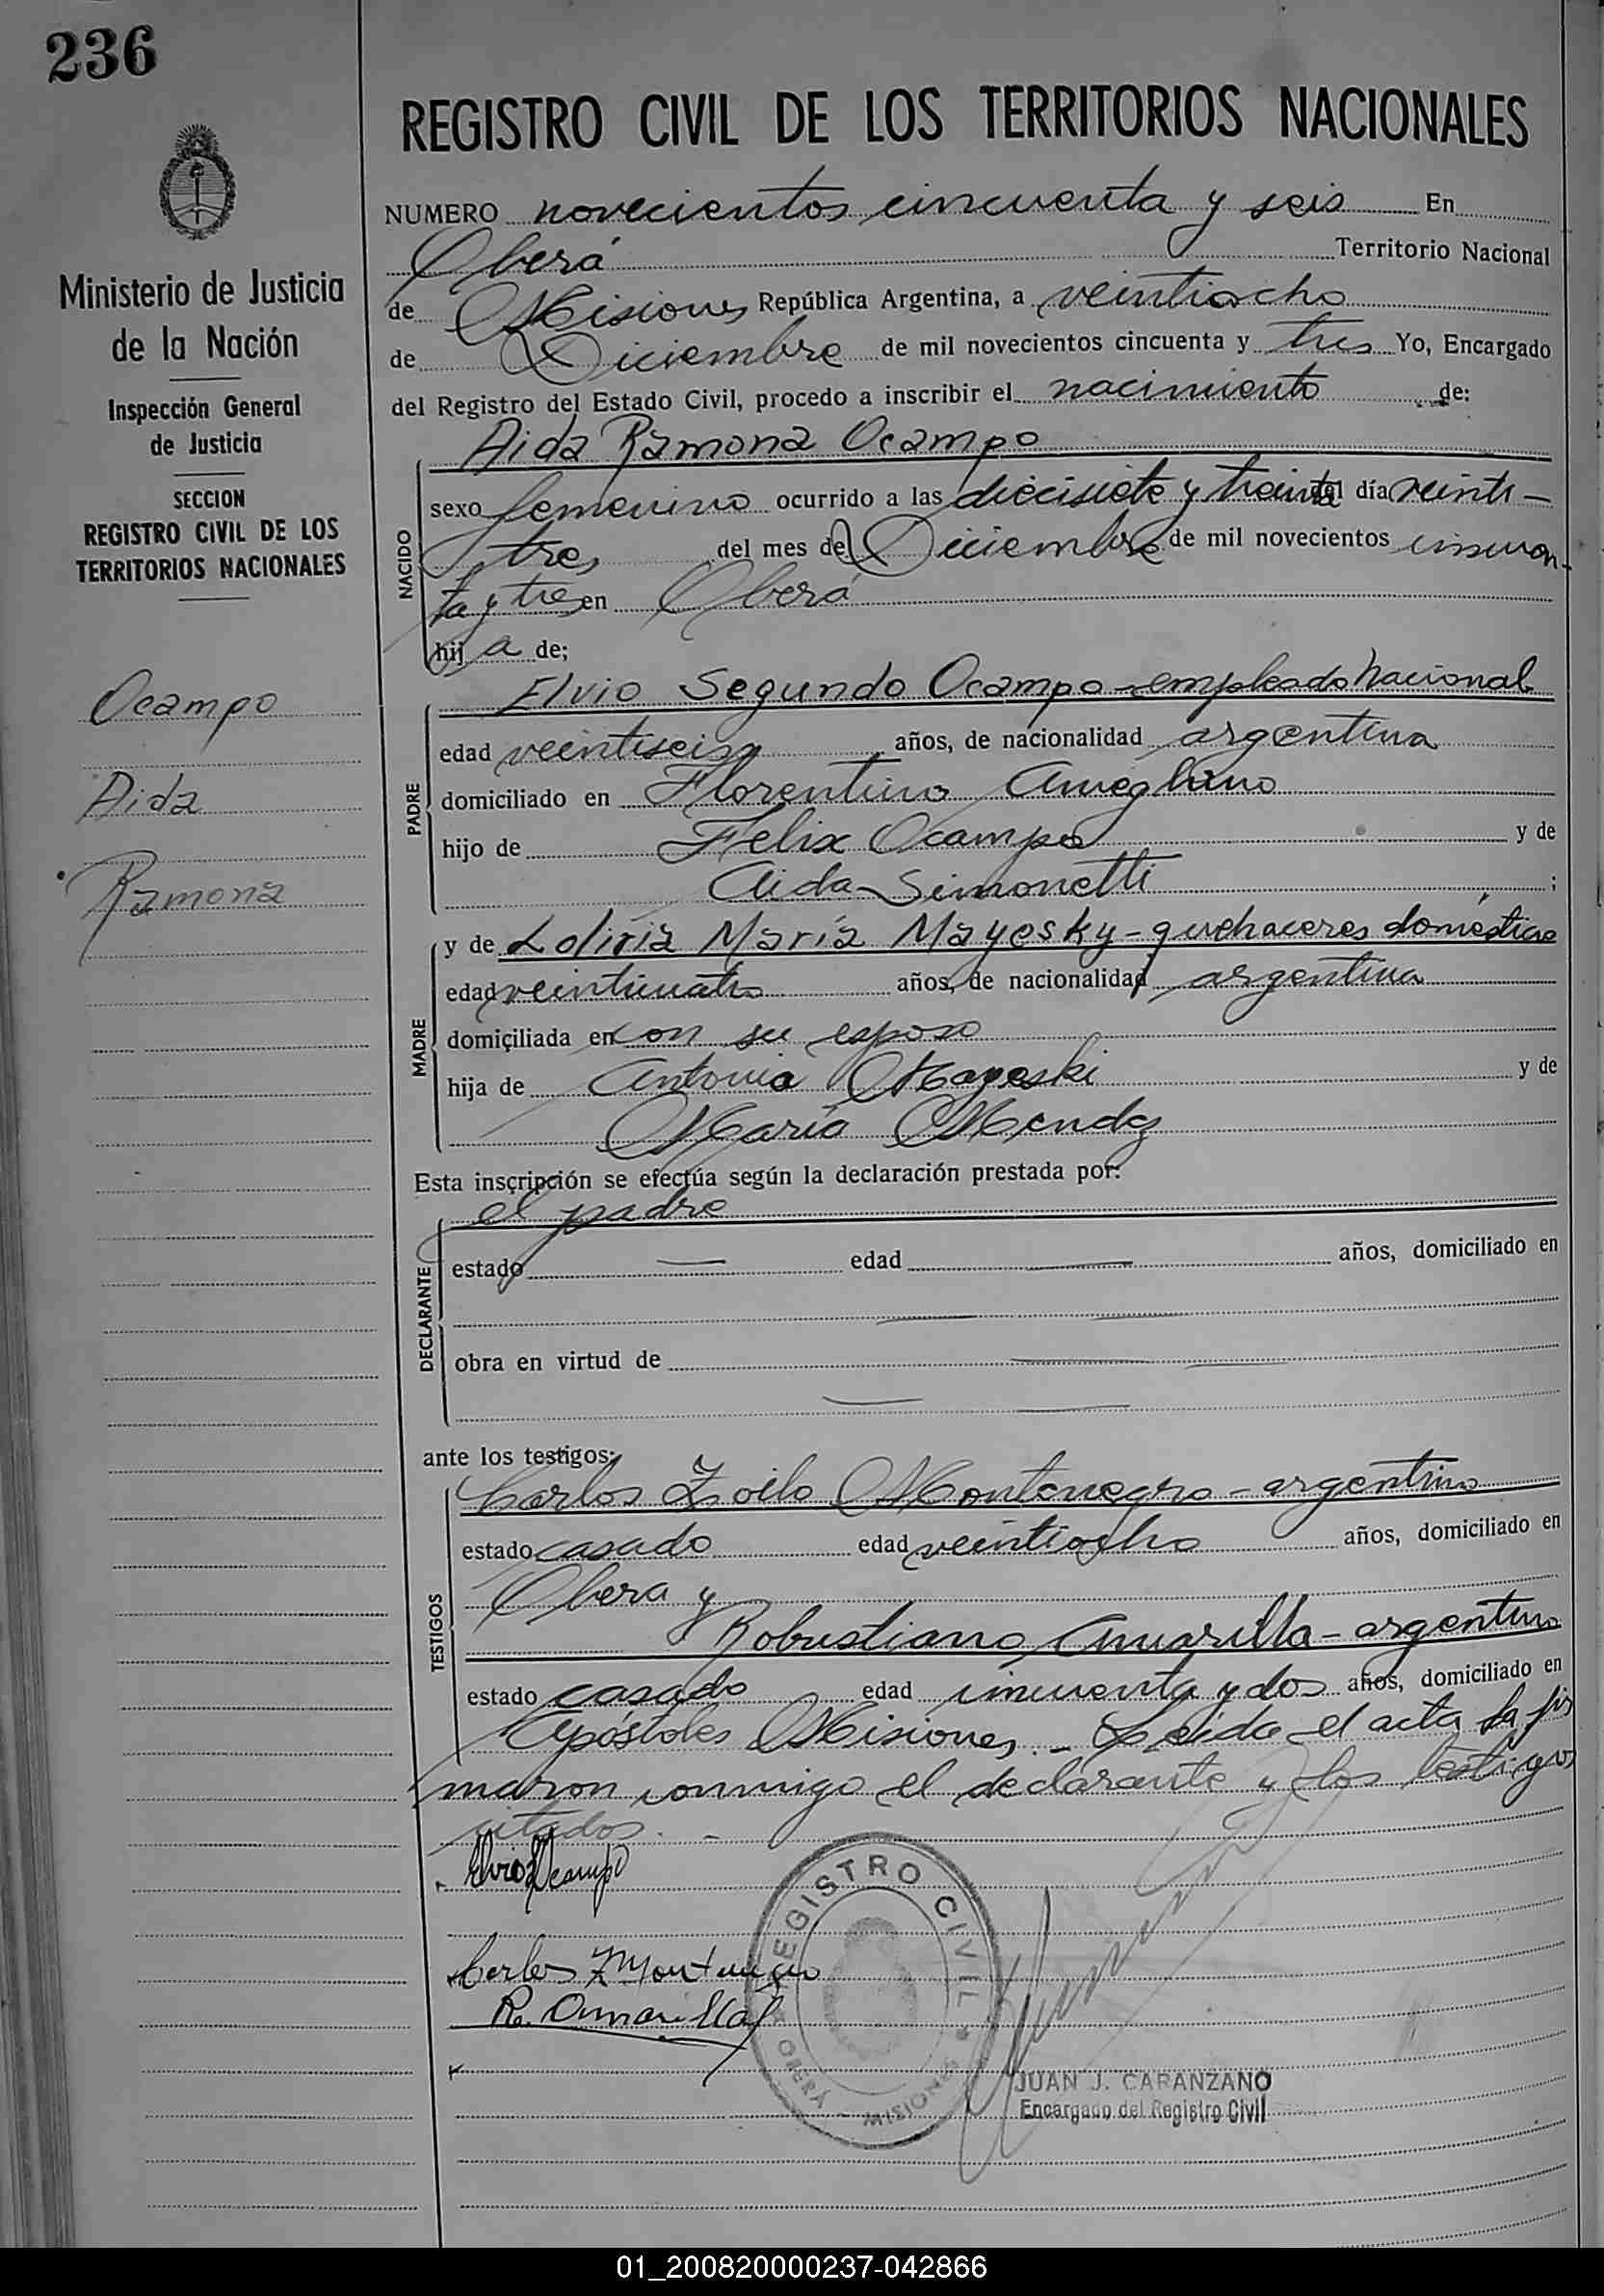 236
REGISTRO CIVIL DE LOS TERRITORIOS NACIONALES
Ministerio de Justicia
de la Nación
Inspección General
de Justicia
SECCION
REGISTRO CIVIL DE LOS
TERRITORIOS NACIONALES
Ocampo
Aida
Ramona
NUMERO novecientos cincuenta y seis En
Oberá Territorio Nacional
de Misiones República Argentina, a veintiocho
de Diciembre de mil novecientos cincuenta y tres Yo, Encargado
del Registro del Estado Civil, procedo a inscribir el nacimiento de:
Aida Ramona Ocampo
NACIDO
sexo femenino ocurrido a las diecisiete y treinta el día veinti-
tres del mes de Diciembre de mil novecientos cincuen-
ta y tres en Oberá
hij a de;
Elvio Segundo Ocampo - empleado Nacional
PADRE
edad veintiseis años, de nacionalidad argentina
domiciliado en Florentino Ameghino
hijo de Felix Ocampo y de
Aida Simonetti ;
y de Loliria María Mayesky - quehaceres domésticos
MADRE
edad veinticuatro años, de nacionalidad argentina
domiciliada en con su esposo
hija de Antonio Mayeski y de
María Mendez
Esta inscripción se efectúa según la declaración prestada por:
el padre
DECLARANTE
estado — edad — años, domiciliado en
obra en virtud de
ante los testigos:
Carlos Zoilo Montenegro - argentino
TESTIGOS
estado casado edad veintiocho años, domiciliado en
Obera y
Robustiano Amarilla - argentino
estado casado edad cincuenta y dos años, domiciliado en
Apóstoles Misiones. - Leida el acta la fir
maron conmigo el declarante y los testigos
citados. -
Elvio S Ocampo
Carlos Z Montenegro
R. Amarilla
REGISTRO CIVIL
OBERÁ - MISIONES
JUAN J. CARANZANO
Encargado del Registro Civil
01_200820000237-042866